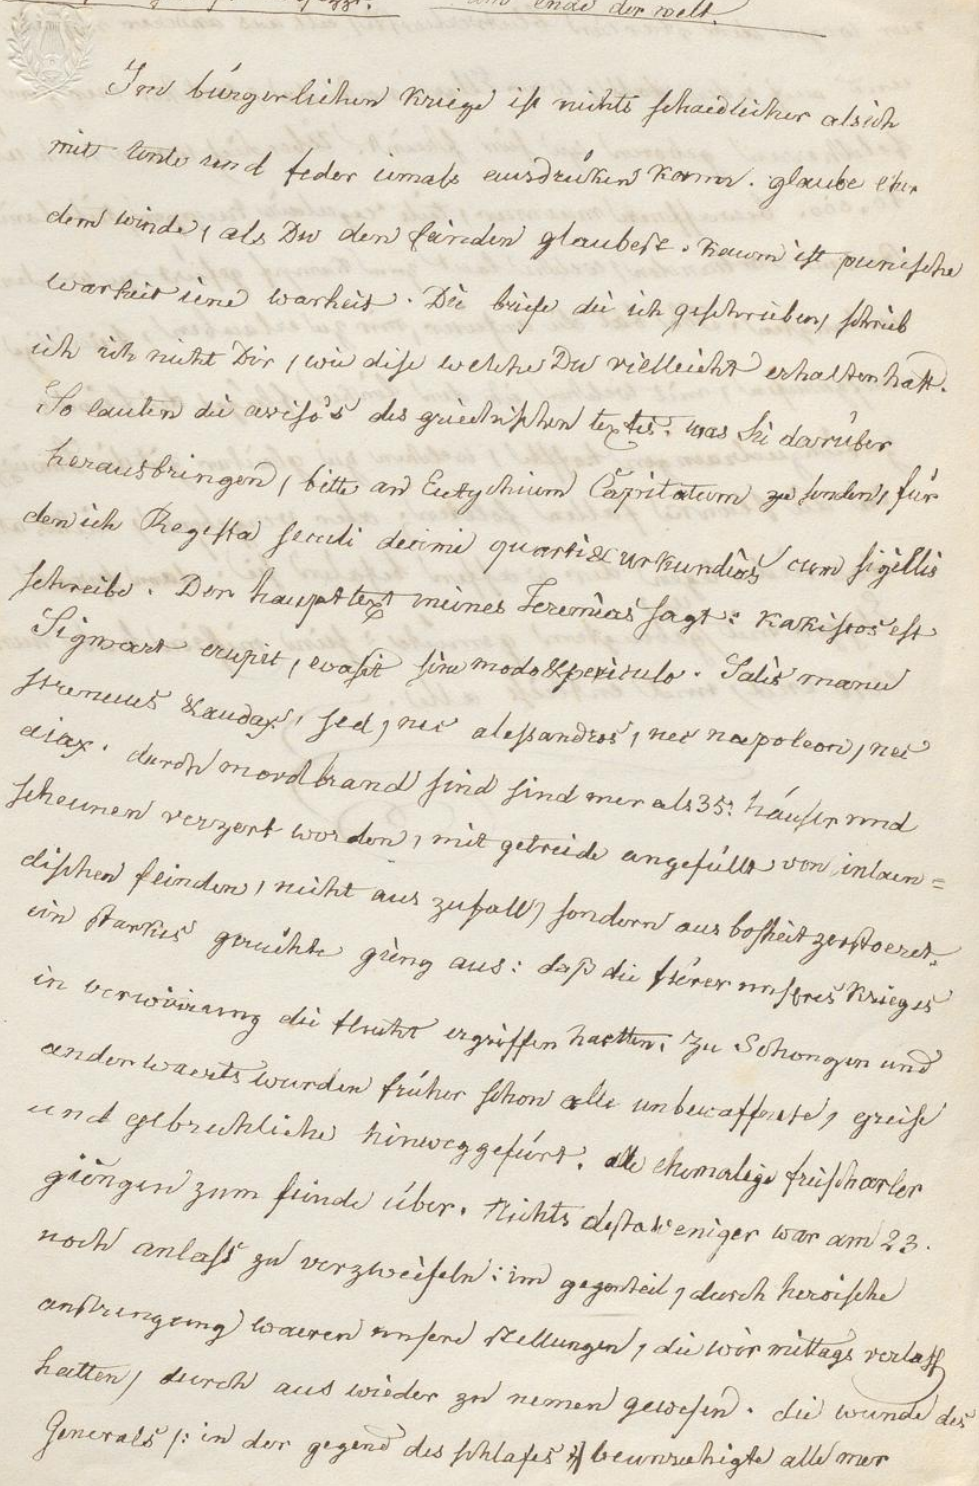 am ende der welt.
Im bürgerlichen Kriege ist nichts schaedlicher als ich
mit tinte und feder iemals ausdrüken kann. glaube eher
dem winde, als Du den feinden glaubest. kaum ist punische
warheit iene warheit. Die briefe die ich geschrieben, schrieb
ich ich nicht Dir, wie dise welche Du vielleicht erhalten hast.
So lauten die aviso's des griechischen textes. was Si darüber
herausbringen, bitte an Eutychium Capitatum zu senden, für
den ich Regesta seculi decimi quarti & urkundias cum sigillis
schreibe. Der haupttext meines Jeremias sagt: kakistos est
Sigwart erupit, evasit sine modo & periculo. Salis manu
strenuus & audax, sed, nec alessandros, nec napoleon, nec
aiax. durch mordbrand sind sind mer als 35. häuser und
scheunen verzert worden, mit getreide angefüllt von inlaen=
dischen feinden, nicht aus zufall, sondern aus bosheit zerstoeret.
ein starkes gerücht gieng aus: daß die fürer unseres Krieges
in verwirrung die flucht ergriffen haetten. Zu Schongen und
anderwaerts wurden früher schon alle unbewaffnete, greise
und gebrechliche hinweggefürt. alle ehemalige freischarler
giengen zum feinde über. Nichts desto weniger war am 23.
noch anlass zu verzweifeln: im gegenteil, durch heroische
anstrengung waeren unsere stellungen, die wir mittags verlass
hatten, durch aus wieder zu nemen gewesen. die wunde des
Generals /: in der gegend des schlafes :/ beunruhigte alle mer